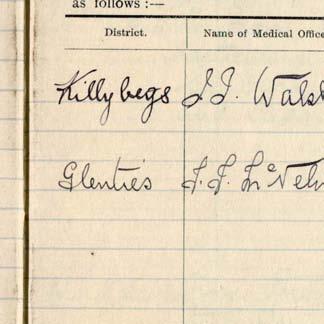 as follows :—
District. Name of Medical Office
Killybegs J J. Wals
Glenties J. J. McNel